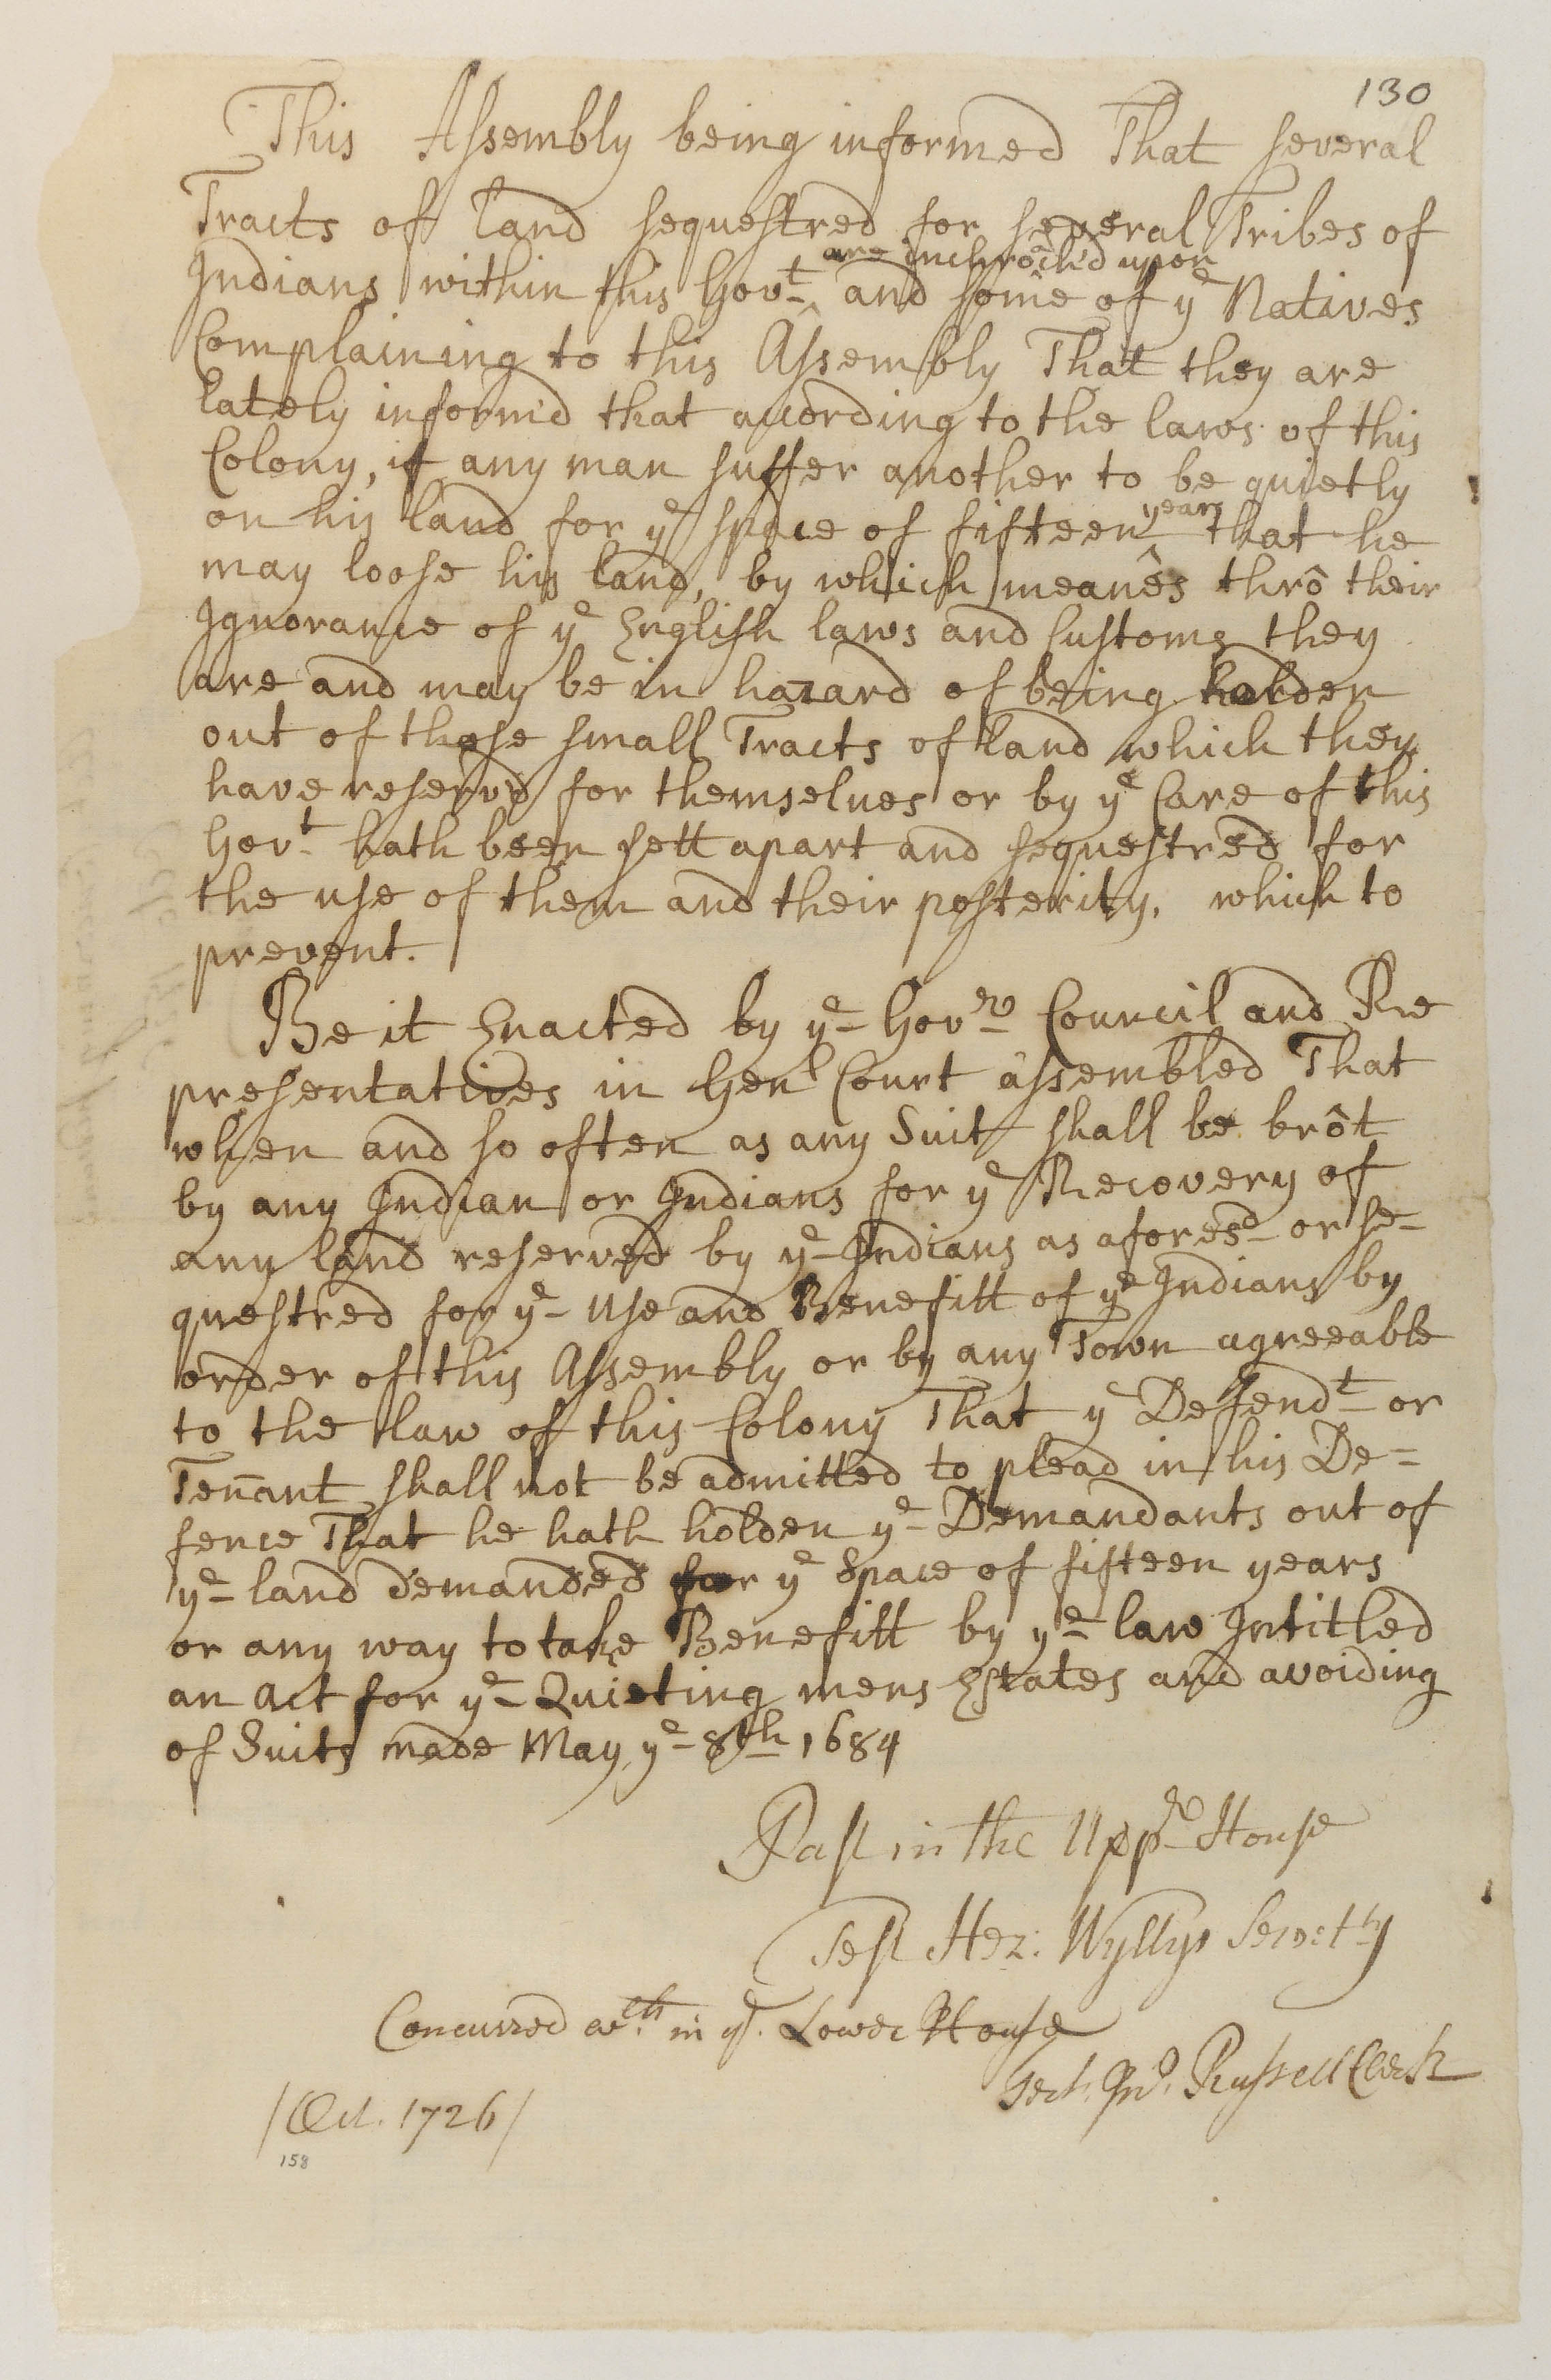 130
This Assembly being informed That several
Tracts of land sequestred for several Tribes of
are Inchroach'd upon
Indians within this Gov^t ‸ and some of y^e Natives
Complaining to this Assembly That they are
lately inform'd that according to the laws of this
Colony, if any man suffer another to be quietly
on his land for y^e space of fifteen ‸ years that he
may loose his land, by which meanes thrô their
Ignorance of y^e English laws and Customs they
are and may be in hazard of being holden
out of those small Tracts of land which they
have reserv'd for themselves or by y^e Care of this
Gov^t hath been sett apart and sequestred for
the use of them and their posterity, which to
prevent.
Be it Enacted by y^e Gov^r Council and Re
presentatives in Gen^l Court assembled That
when and so often as any Suit shall be brôt
by any Indian or Indians for y^e Recovery of
any land reserved by y^e Indians as afores^d or se-
questred for y^e use and Benefitt of y^e Indians by
order of this Assembly or by any Town agreeable
to the law of this Colony That y^e Defend^t or
Ten̄ant shall not be admitted to plead in his De=
fence That he hath holden y^e Demandants out of
y^e land demanded for y^e Space of fifteen years
or any way to take Benefitt by y^e law Intitled
an Act for y^e Quieting mens Estates and avoiding
of Suits made May y^e 8th 1684
Past in the Upp^r House
Test Hez: Wyllys Secret^ry
Concurred w^th in y^e Lower House
Test. Jn^o. Russell Clerk
/Oct. 1726/
158